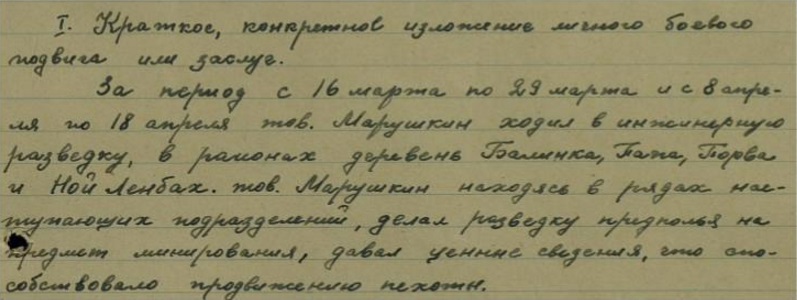 I. Краткое, конкретное изложение личного боевого
подвига или заслуг.
За период с 16 марта по 29 марта и с 8 апре-
ля по 18 апреля тов. Марушкин ходил в инженерную
разведку, в районах деревень Балинка, Папа, Порва
и Ной Ленбах. тов. Марушкин находясь в рядах нас-
тупающих подразделений, делал разведку предполья на
предмет минирования, давал ценные сведения, что спо-
собствовало продвижению пехоты.